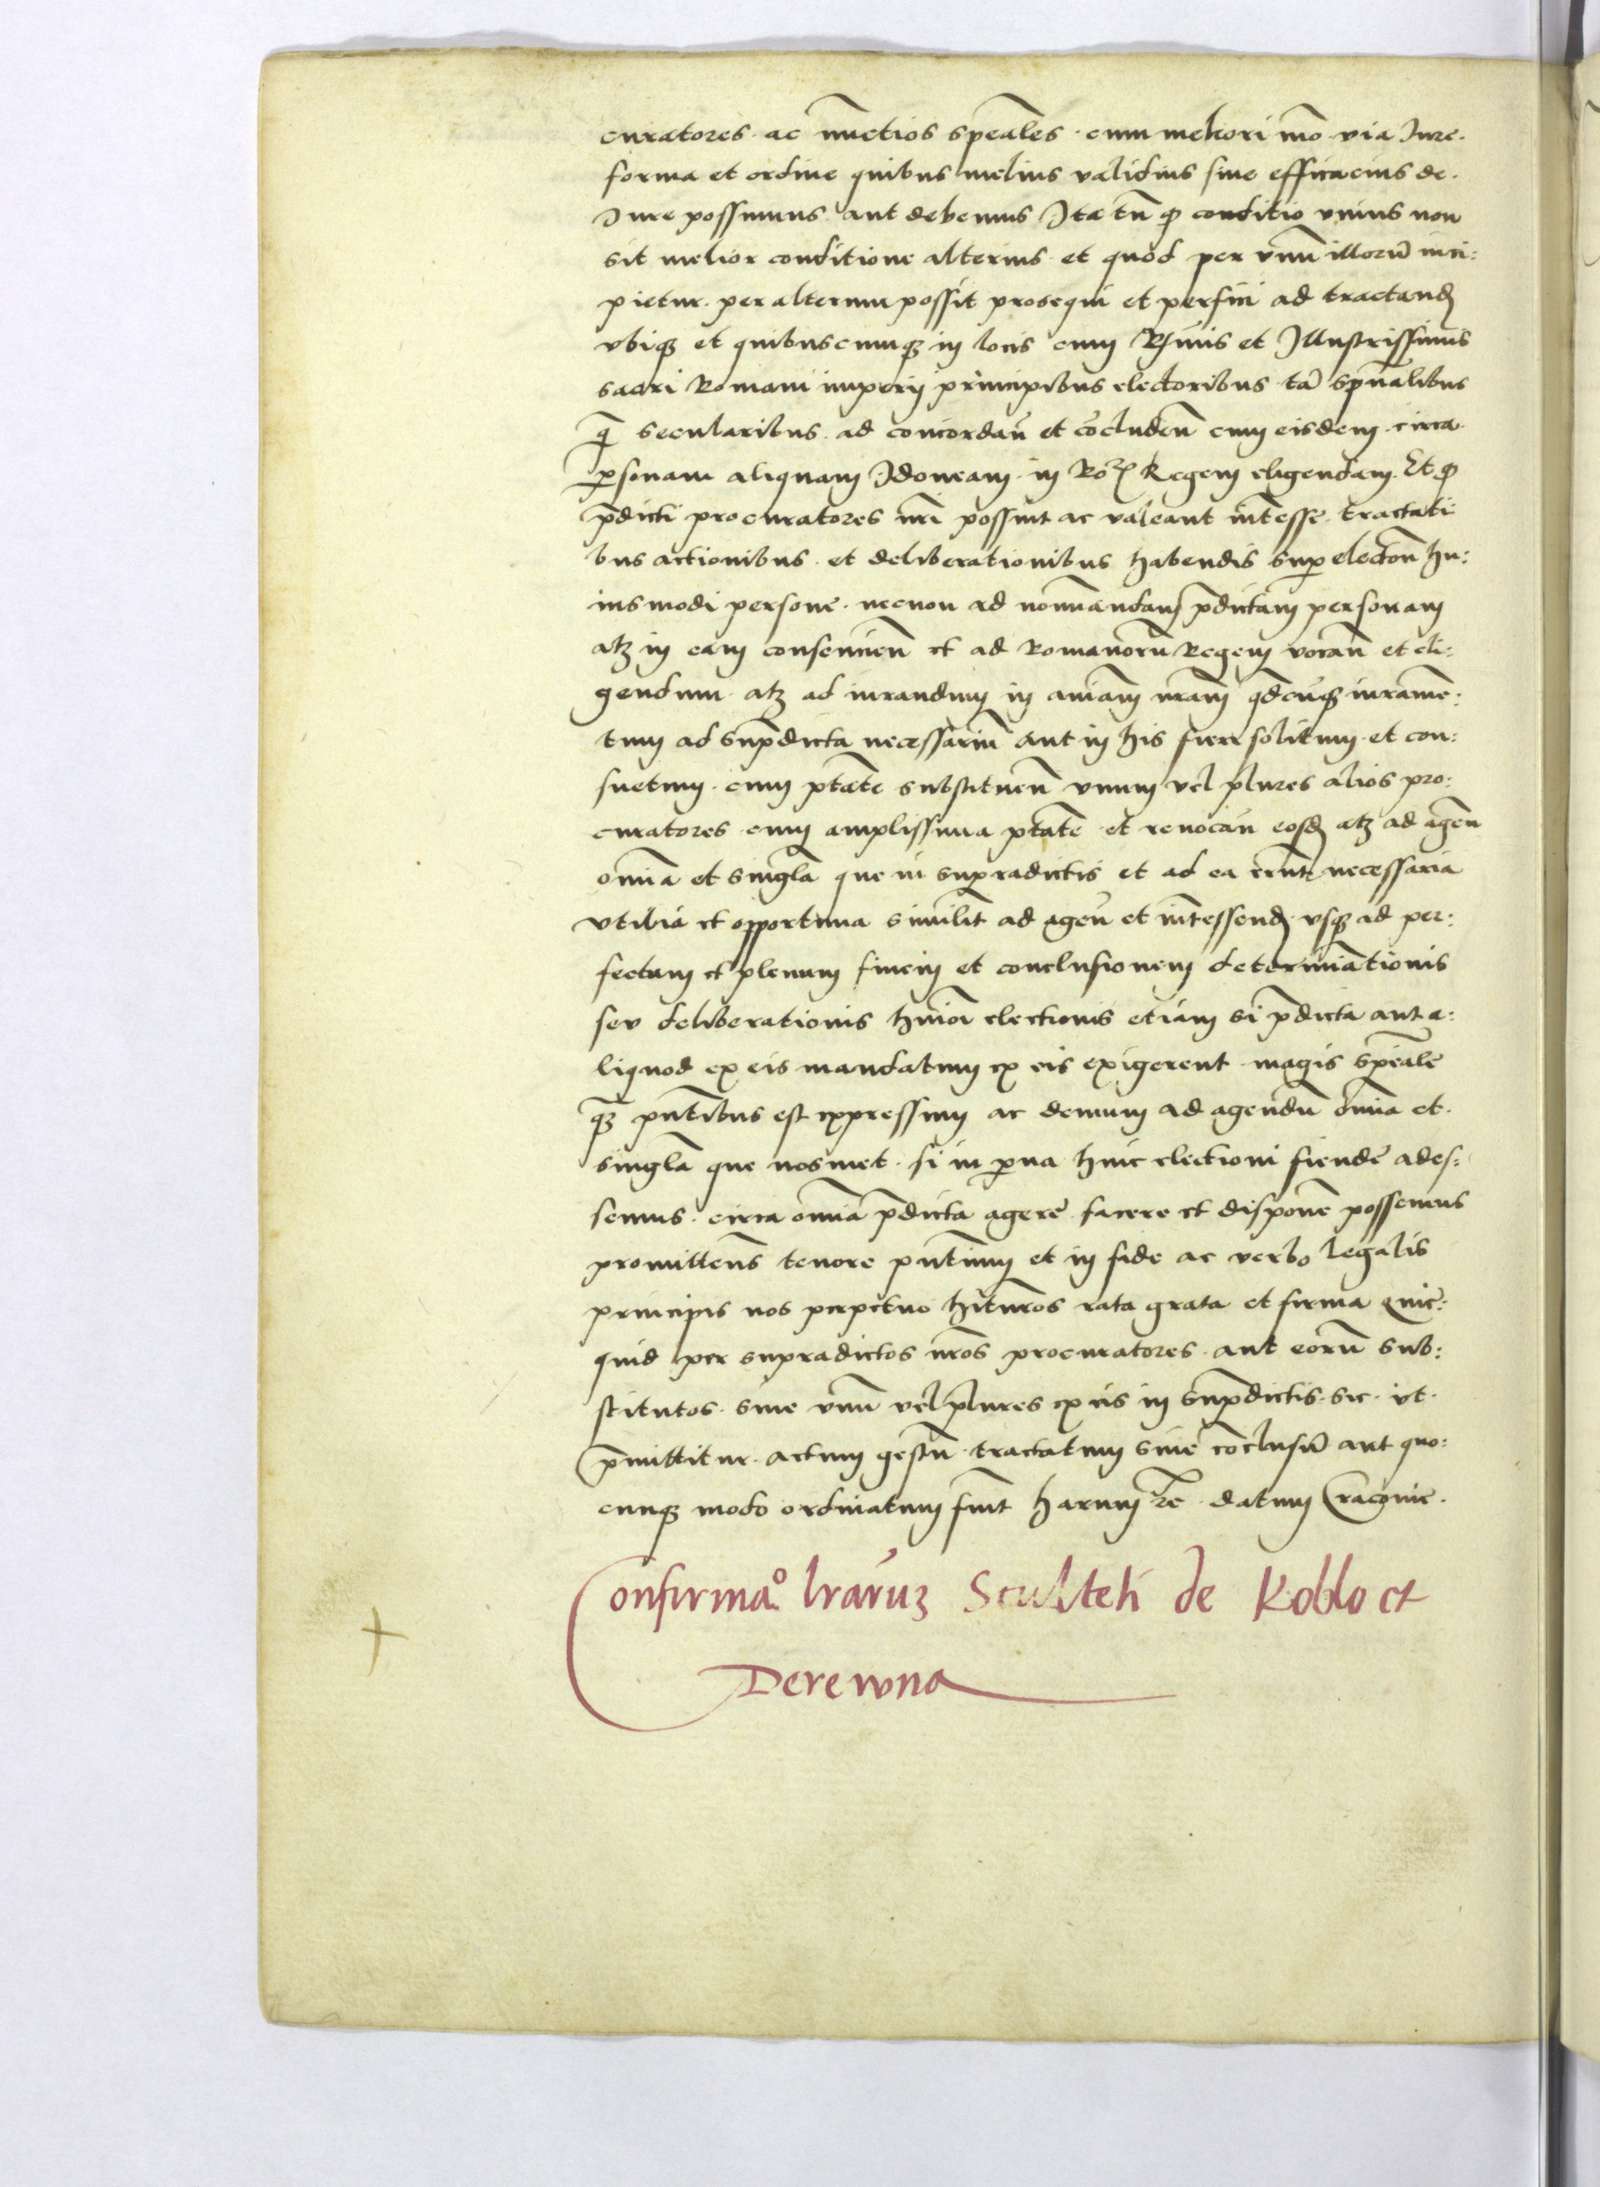 curatores. ac nu̅ctios sp̅eales. cum meliori mo̅ via Jure.
forma et ordine quibus melius validius siue efficacius de.
Jure possumus. aut debemus Jta tn̅ ꝙ conditio vnius non
sit melior conditione alterius. et quod per vnu̅ illoru̅ inci:
pietur. per alterum possit prosequi et perfici ad tractand̅
vbiqꝫ et quibuscumqꝫ in locis cum R̅mis et Jllustrissimis
sacri Romani imperij principibus electoribus ta̅ sp̅ualibus
q̅ secularibus. ad concordan̅ et co̅cluden̅ cum eisdem. circa.
ꝑsonam aliquam Jdoneam. in Ro̅ꝝ Regem eligendam. Et ꝙ
p̅dicti procuratores nr̅i possint ac valeant int̅esse. tractati
bus actionibus. et deliberationibus habendis suꝑ electon̅ hu:
iusmodi persone. necnon ad no̅inandam p̅dictam personam
atꝫ in eam consencien̅ et ad Romanoru̅ Regem vocan̅ et eli:
gendum. atꝫ ad iurandum in ani̅am nr̅am qd̅cu̅qꝫ iurame̅:
tum ad sup̅dicta necessariu̅ aut in his fieri solitum. et con:
suetum. cum pt̅ate substituen̅ vnum vel plures alios pro:
curatores cum amplissima pt̅ate et reuocan̅ eosd̅ atꝫ ad agen̅
om̅ia et singl̅a que in supradictis et ad ea erunt necessaria
vtilia et opportuna similit̅ ad agen̅ et int̅essend̅ vsqꝫ ad per:
fectum et plenum finem et conclusionem determinationis
seu deliberationis hm̅oi electionis etiam si p̅dicta aut a:
liquod ex eis mandatum ex eis exigerent. magis sp̅eale
qꝫ pn̅tibus est expressum ac demum ad agendu̅ om̅ia et.
singl̅a que nosmet. si in ꝑna huic electioni fiende ades:
semus. circa om̅ia p̅dicta agere facere et dispone̅ possemus
promitten̅s tenore pn̅tium et in fide ac verbo legalis
principis nos perpetuo hit̅uros rata grata et firma quic:
quid per supradictos nr̅os procuratores. aut eoru̅ sub:
stitutos. siue vnu̅ vel plures ex iis in sup̅dictis. sic. vt.
p̅mittitur. actum gestu̅. tractatum siue co̅clusu̅ aut quo:
cunqꝫ modo ordinatum fuit harum ꝛc̅. datum Cracouie.
Confirmao̅ lr̅aruꝫ Sculteti de Koblo et
Derewna